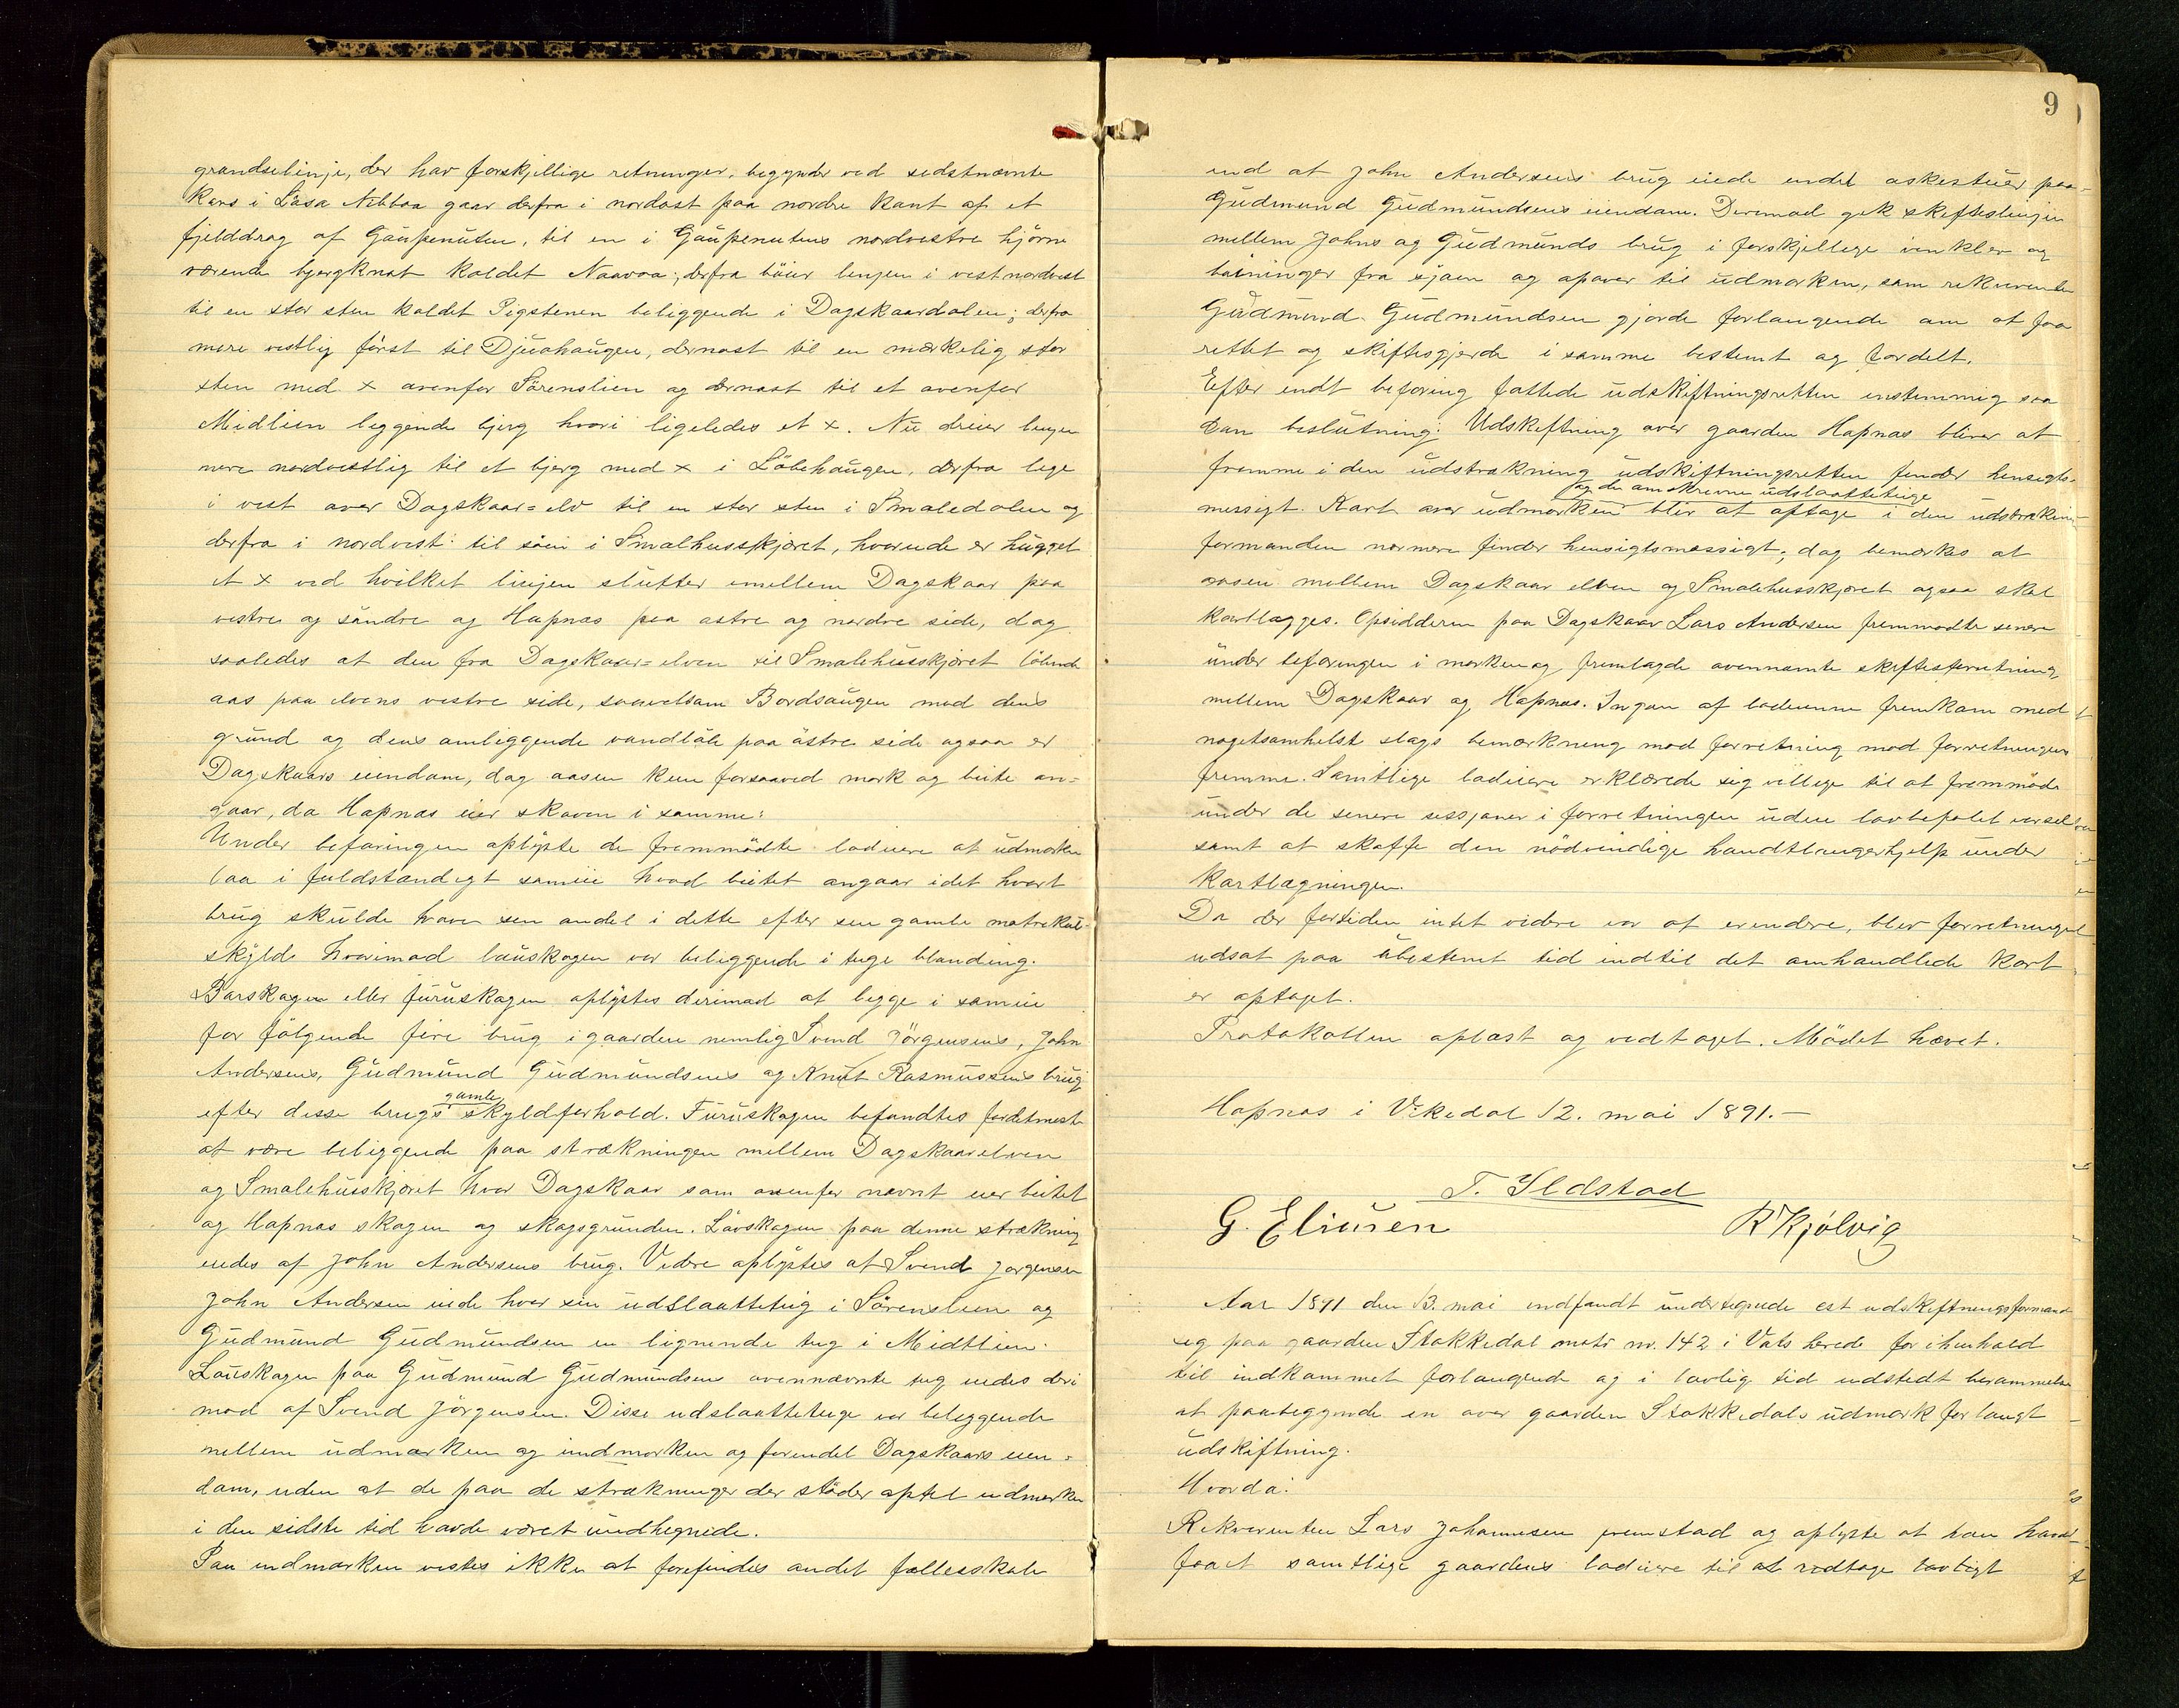 grændselinje, der har forskjellige retninger, begynder ved sidstnævnte
Kars i Låsa Nibbaa gaar derfra i nordost paa nordre kant af et
fjelddrag af Gaupenuten, til en i Gaupenutens nordvestre hjørne
værende bjergknat kaldet Naavaa; derfra böier linjen i vestnordvest
til en stor sten kaldet Pigstenen beliggende i Dagskaardalen; derfra
mere vestlig först til Djuahaugen, dernæst til en mærkelig stor
sten med x ovenfor Sörenslien og dernæst til et ovenfor
Midlien liggende bjerg hvori ligeledes et x. Nu dreier linjen
mere nordvestlig til et bjerg med x i Löbehaugen, derfra lige
i vest over Dagskaar=elv til en stor sten i Smaledalen og
derfra i nordvest til söen i Smalhusskjæret, hvorude er hugget
et x ved hvilket linjen slutter imellem Dagskaar paa
vestre og söndre og Hapnæs paa østre og nordre side, dog
saaledes at den fra Dagskaar=elven til Smalehusskjæret löbende
aas paa elvens vestre side, saavelsom Bordsaugen med dens
grund og dens omliggende vandlåb paa østre side ogsaa er
Dagskaars eiendom, dog aasen kun forsaavid mark og beite an=
gaar, da Hapnæs eier skoven i samme:
Under befaringen oplyste de fremmödte lodeiere at udmarken
laa i fuldstændigt sameie hvad beitet angaar idet hvert
brug skulde have sin andel i dette efter sin gamle matrikul=
skyld. hvorimod lauskogen var beliggende i teige blanding.
Barskogen eller furuskogen oplystes derimod at ligge i sameie
for fölgende fire brug i gaarden nemlig Svend Jörgensens, John
Andersens, Gudmund Gudmundsens og Knut Rasmussens brug
efter disse brugs gamle skyldforhold. Furuskogen befandtes fordetmeste
at være beliggende paa strækningen mellem Dagskaarelven
og Smalehusskjæret hvor Dagskaar som ovenfor nævnt eier beitet
og Hapnæs skogen og skogsgrunden. Lövskogen paa denne strækning
eiedes af John Andersens brug. Videre oplystes at Svend Jørgensen
John Andersen eiede hver sin udslaatteteig i Sörenslien og
Gudmund Gudmundsen en lignende teig i Midtlien.
Lauskogen paa Gudmund Gudmundsens ovennævnte teig eiedes deri
mod af Svend Jörgensen. Disse udslaatteteige var beliggende
mellem udmarken og indmarken og forendel Dagskaars eien=
dom, uden at de paa de strækninger der stöder optil udmarken
i den sidste tid havde været indhegnede.
Paa indmarken vistes ikke at forefindes andet fællesskab
9
end at John Andersens brug eiede endel askestuer paa
Gudmund Gudmundsens eiendom. Derimod gik skifteslinjen
mellem Johns og Gudmunds brug i forskjellige vinkler og
böininger fra sjøen og opover til udmarken, som rekvirenten
Gudmund Gudmundsen gjorde forlangende om at faa
rettet og skiftesgjerde i samme bestemt og fordelt.
Efter endt befaring fattede udskiftningsretten enstemmig saa
dan beslutning: Udskiftning over gaarden Hapnæs bliver at
fremme i den udstrækning udskiftningsretten finder hensigts-
messigt. Kart over udmarken og de omskrevne udslaatteteige blir at optage i den udstrækning
formanden nærmere finder hensigtsmæssigt; dog bemærkes at
aasen mellem Dagskaar elven og Smalehusskjæret ogsaa skal
kartlægges. Opsidderen paa Dagskaar Lars Andersen fremmödte senere
under befaringen i marken og fremlagde ovennævnte skiftesforretning
mellem Dagskaar og Hapnæs. Ingen af lodeierne fremkom med
nogetsomhelst slags bemærkning mod forretning mod forretningens
fremme. Samtlige lodeiere erklærede sig villige til at fremmöde
under de senere sessjoner i forretningen uden lovbefalet varsel
samt at skaffe den nödvendige haandtlangerhjelp under
kartlægningen.
Da der fortiden intet videre var at erindre, blev forretningen
udsat paa ubestemt tid indtil det omhandlede kart
er optaget.
Protokollen oplæst og vedtaget. Mödet hævet.
Hapnæs i Vikedal 12. mai 1891.—
T. Ildstad
G. Eliasen R Kjölvig
Aar 1891 den 13. mai indfandt undertegnede cst udskiftningsformand
sig paa gaarden Stokkedal matr nr. 142 i Vats herede for ihenhold
til indkommet forlangende og i lovlig tid udstedt berammelse
at paabegynde en over gaarden Stokkedals udmark forlangt
udskiftning.
Hvorda:
Rekvirenten Lars Johannesen fremstod og oplyste at han havde
faaet samtlige gaardens lodeiere til at vedtage lovligt